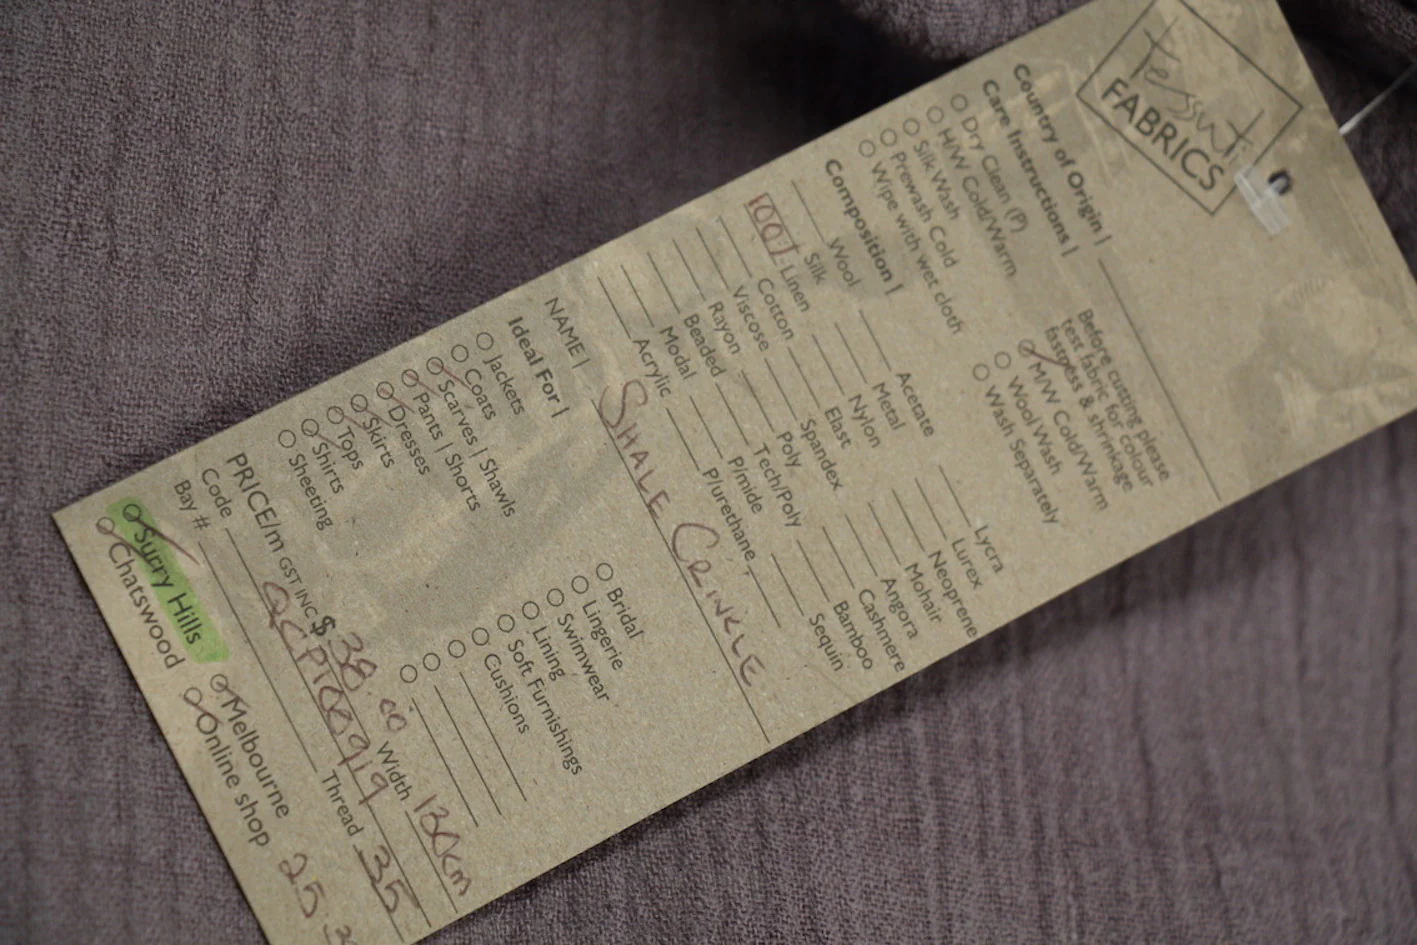 tessuti
FABRICS
Country of Origin |
Care Instructions |
Dry Clean (P)
H/W Cold/Warm
Silk Wash
Prewash Cold
Wipe with wet cloth
Before cutting please
test fabric for colour
fastness & shrinkage
M/W Cold/Warm
Wool Wash
Wash Separately
Composition |
Wool Acetate Lycra
Silk Metal Lurex
100% Linen Nylon Neoprene
Cotton Elast Mohair
Viscose Spandex Angora
Rayon Poly Cashmere
Beaded Tech/Poly Bamboo
Modal P/mide Sequin
Acrylic P/urethane
NAME | SHALE CRINKLE
Ideal For |
Jackets Bridal
Coats Lingerie
Scarves | Shawls Swimwear
Pants | Shorts Lining
Dresses Soft Furnishings
Skirts Cushions
Tops
Shirts
Sheeting
PRICE/m GST INC $ 38.00 Width 130cm
Code QCPT00919 Thread 35
Bay #
Surry Hills Melbourne
Chatswood Online shop 25.